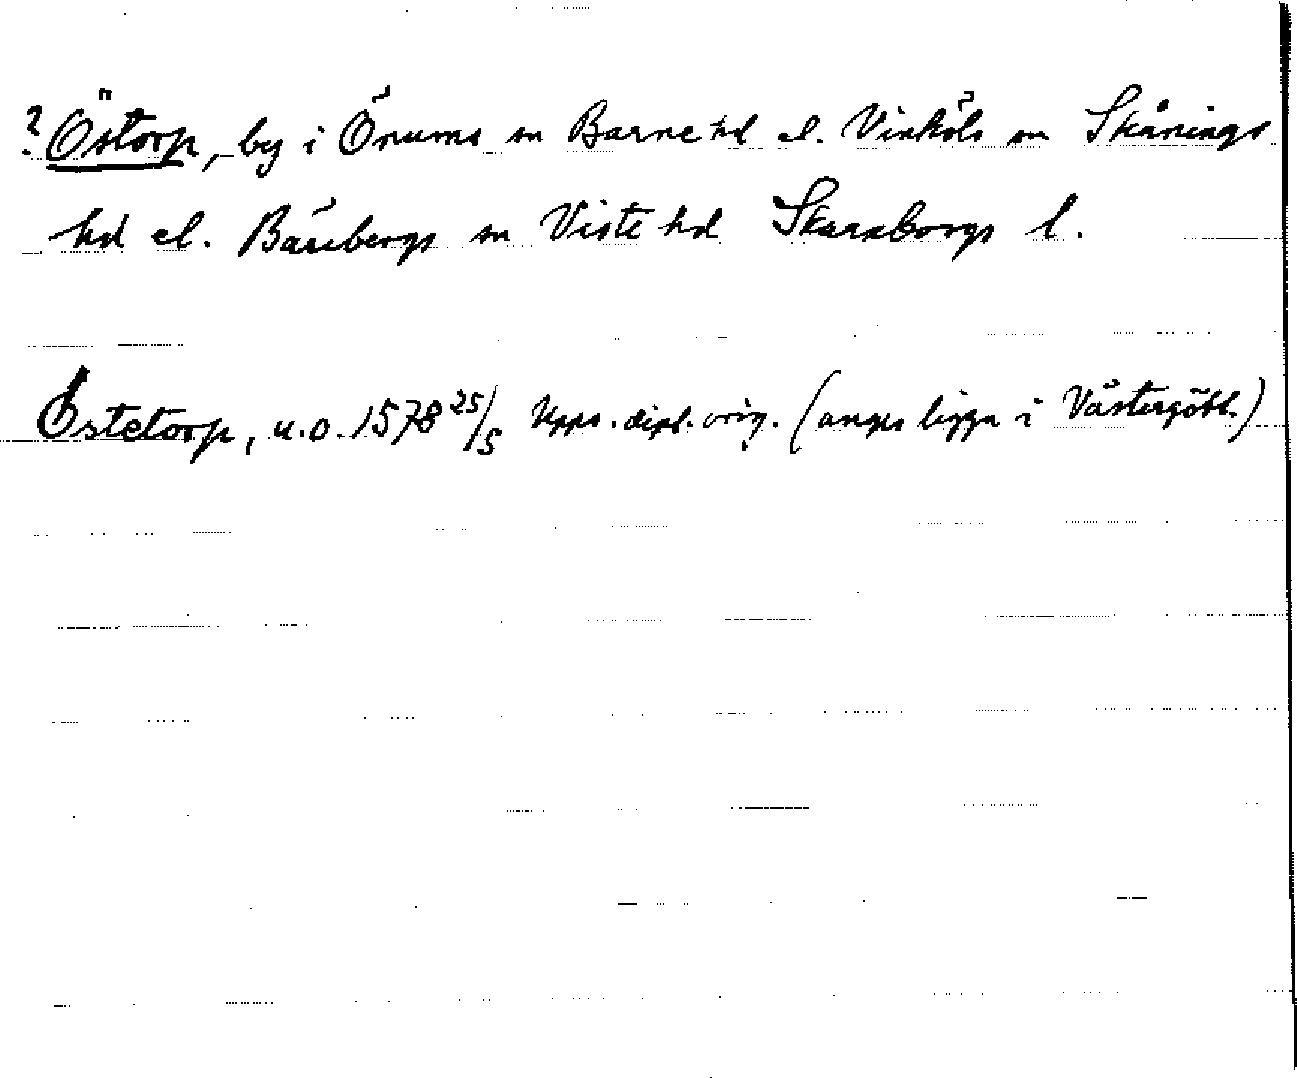 ? Östorp, by i Önums sn Barne hd el. Vinköls sn Skånings
hd el. Bärebergs sn Viste hd Skaraborgs l.
Östetorp, u.o. 1578 25/5 Upps. dipl. orig. (anges ligga i Västergötl.)